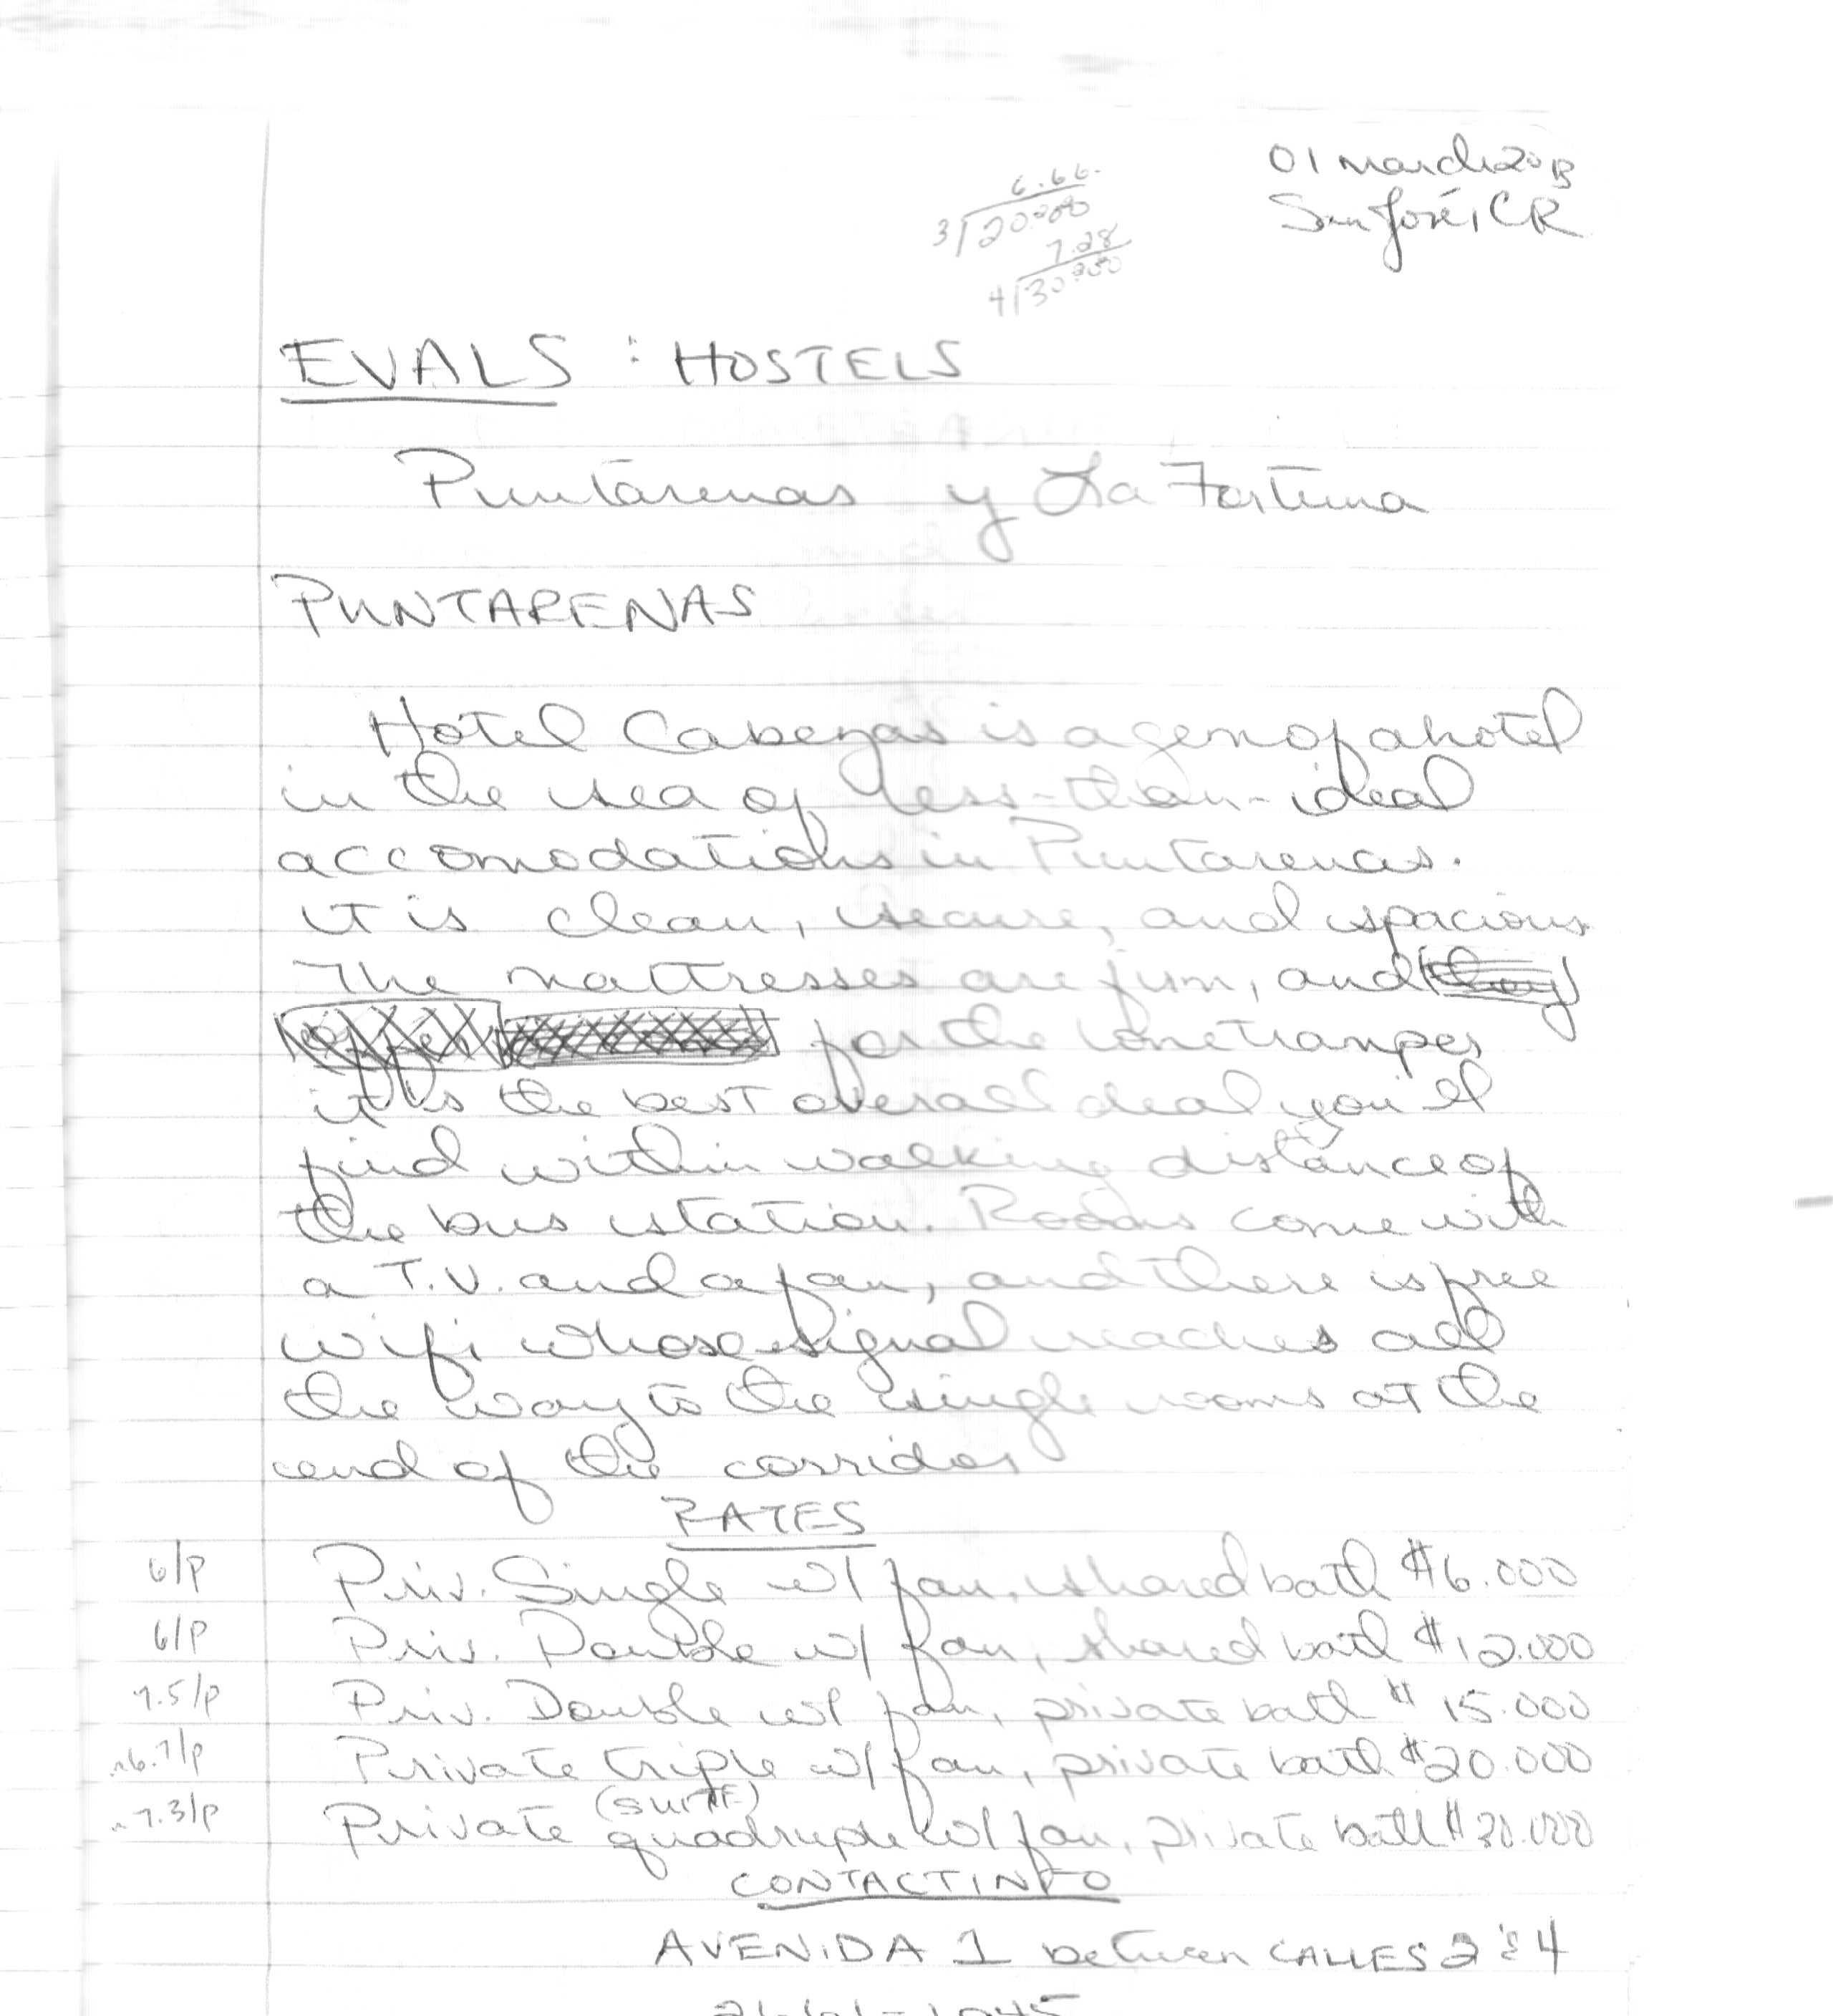 01 March 2013
San José, CR
6.66.
3/20.000
7.28
4/30.000
EVALS : HOSTELS
Puntarenas y La Fortuna
PUNTARENAS
Hotel Cabezas is a gem of a hotel
in the sea of less-than-ideal
accomodations in Puntarenas.
it is clean, secure, and spacious.
The mattresses are firm, and they
offer for the lone tramper
it is the best overall deal you'll
find within walking distance of
the bus station. Rooms come with
a T.V. and a fan, and there is free
wifi whose signal reaches all
the way to the single rooms at the
end of the corridor
RATES
6/p Priv. Single w/ fan, shared bath $6.000
6/p Priv. Double w/ fan, shared bath $12.000
7.5/p Priv. Double w/ fan, private bath $15.000
~6.7/p Private triple w/ fan, private bath $20.000
(SUITE)
~7.3/p Private quadruple w/ fan, private bath $30.000
CONTACT INFO
AVENIDA 1 between CALLES 2 & 4